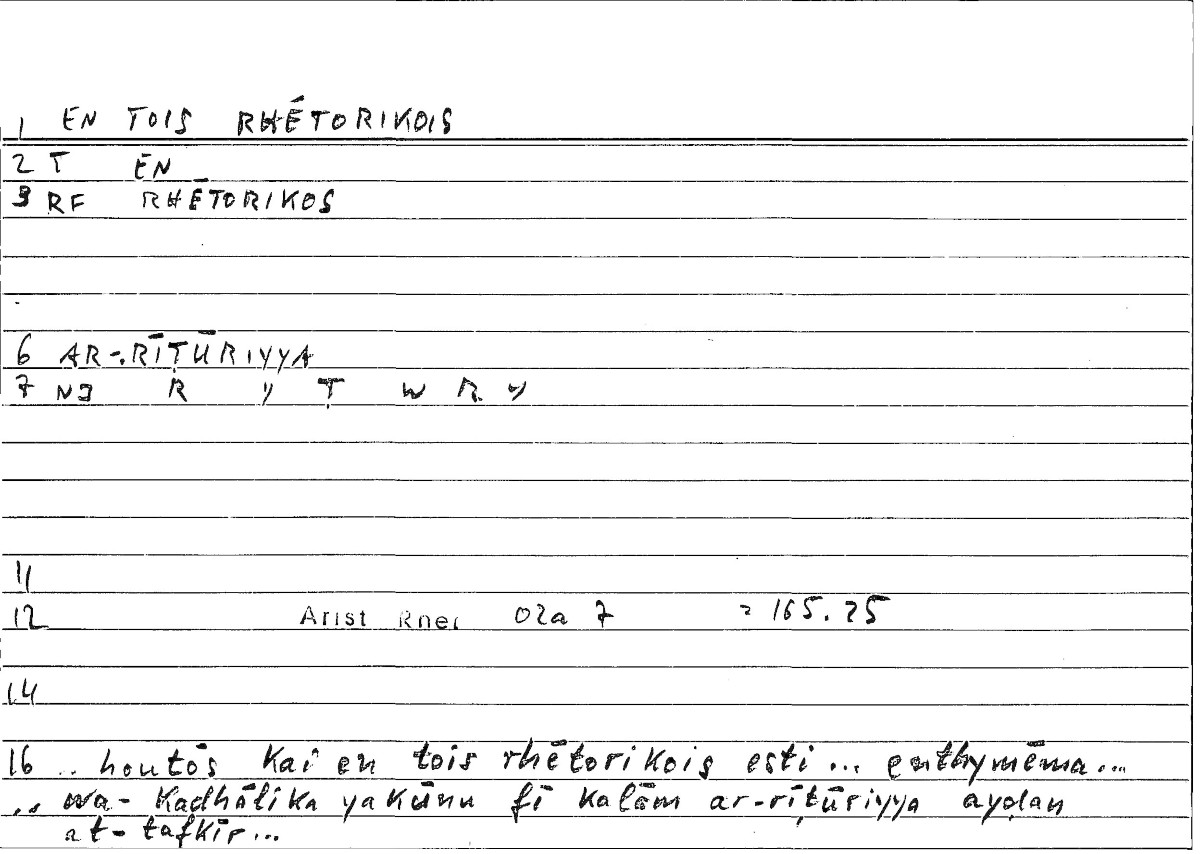 1 EN TOIS RHĒTORIKOIS
2 T EN
3 RF RHĒTORIKOS
6 AR-RĪṬŪRIYYA
7 NJ R Y Ṭ W R Y
11
12 Arist Rhet 02a 7 = 165.25
14
16 .. houtōs kai en tois rhētorikois esti ... enthymēma ...
.. wa-kadhālika yakūnu fī kalām ar-rīṭūriyya ayḍan
at-tafkīr ...